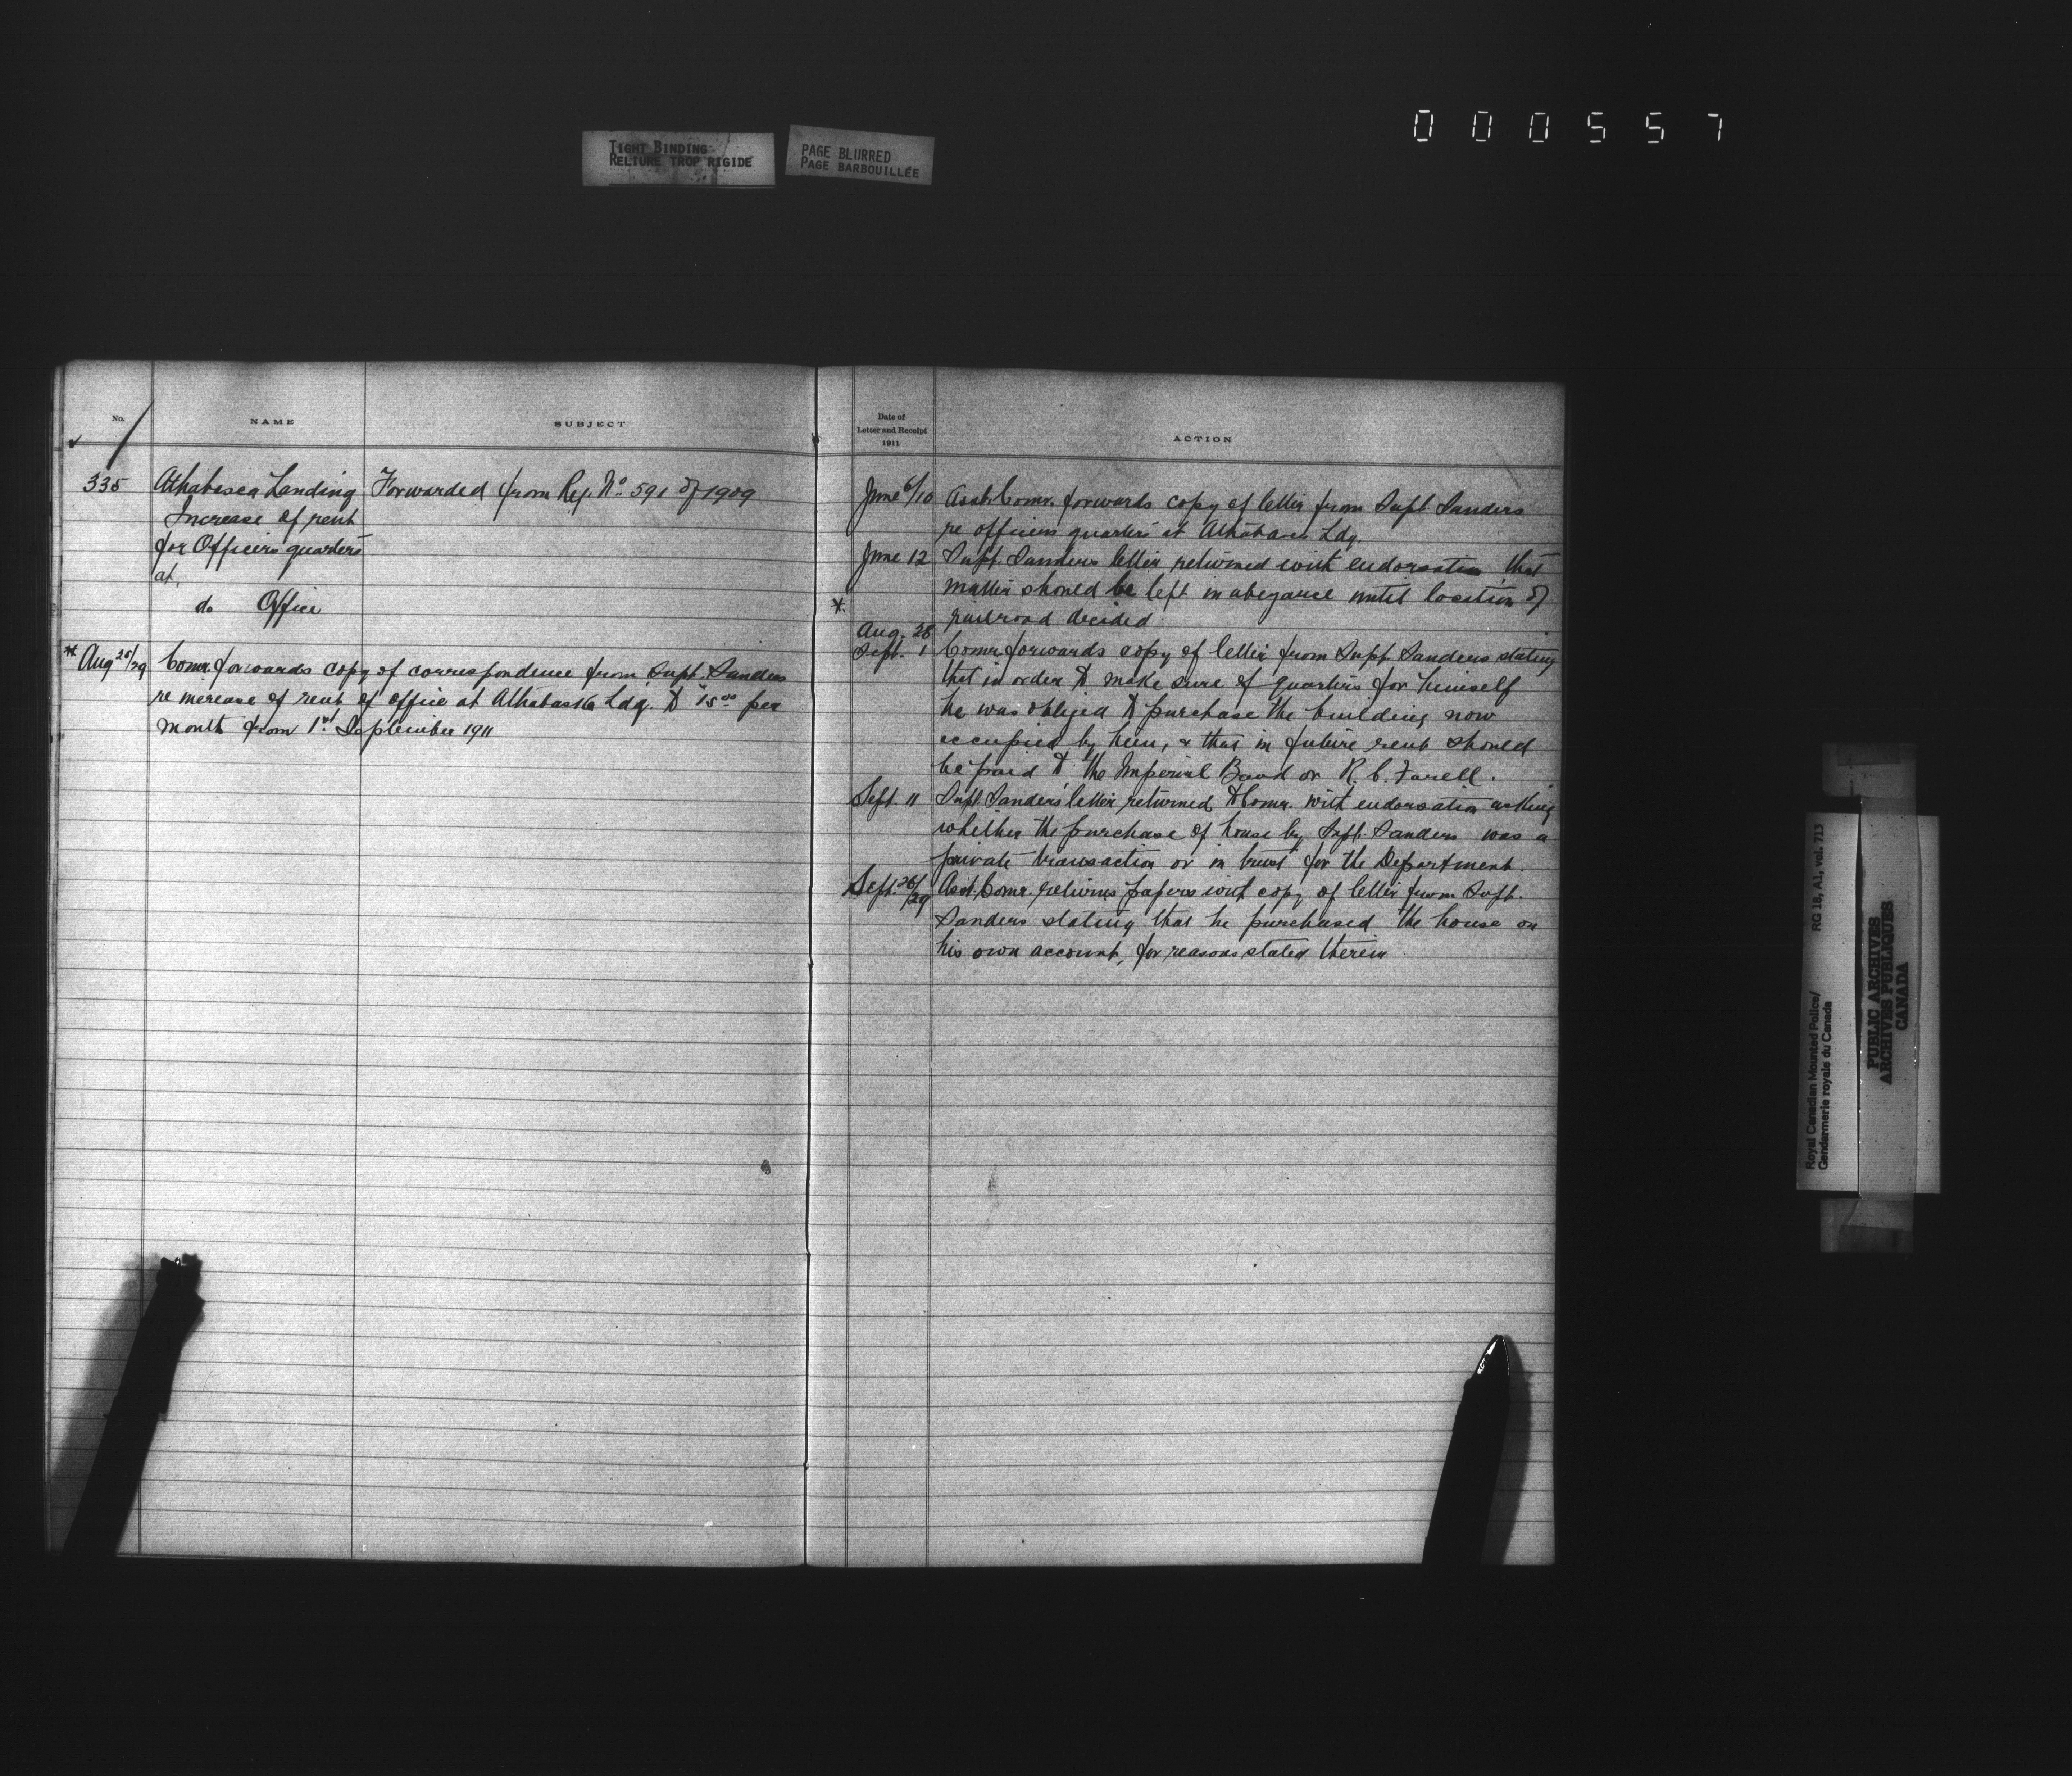 000557
TIGHT BINDING
RELIURE TROP RIGIDE
PAGE BLURRED
PAGE BARBOUILLÉE
No.
NAME
SUBJECT
335
Athabasca Landing
Increase of rent
for Officers quarters
at.
do Office
Forwarded from Reg. No. 591 of 1909
* Aug 25/29
Comr. forwards copy of correspondence from Supt. Sanders
re increase of rent of office at Athabaska Ldg. to $15.00 per
month from 1st September 1911
Date of
Letter and Receipt
1911
ACTION
June 6/10 Asst. Comr. forwards copy of letter from Supt. Sanders
re officers quarters at Athabasca Ldg.
June 12 Supt. Sanders letter returned with endorsation that
matter should be left in abeyance until location of
*
railroad decided.
Aug. 28
Sept. 1 Comr. forwards copy of letter from Supt. Sanders stating
that in order to make sure of quarters for himself
he was obliged to purchase the building now
occupied by him, & that in future rent should
be paid to the Imperial Bank or R. C. Farell.
Sept. 11 Supt. Sanders' letter returned to Comr. with endorsation asking
whether the purchase of house by Supt. Sanders was a
private transaction or in trust for the Department.
Sept. 26/29 Asst. Comr. returns papers with copy of letter from Supt.
Sanders stating that he purchased the house on
his own account, for reasons stated therein.
Royal Canadian Mounted Police/
Gendarmerie royale du Canada
RG 18, A1, vol. 713
PUBLIC ARCHIVES
ARCHIVES PUBLIQUES
CANADA